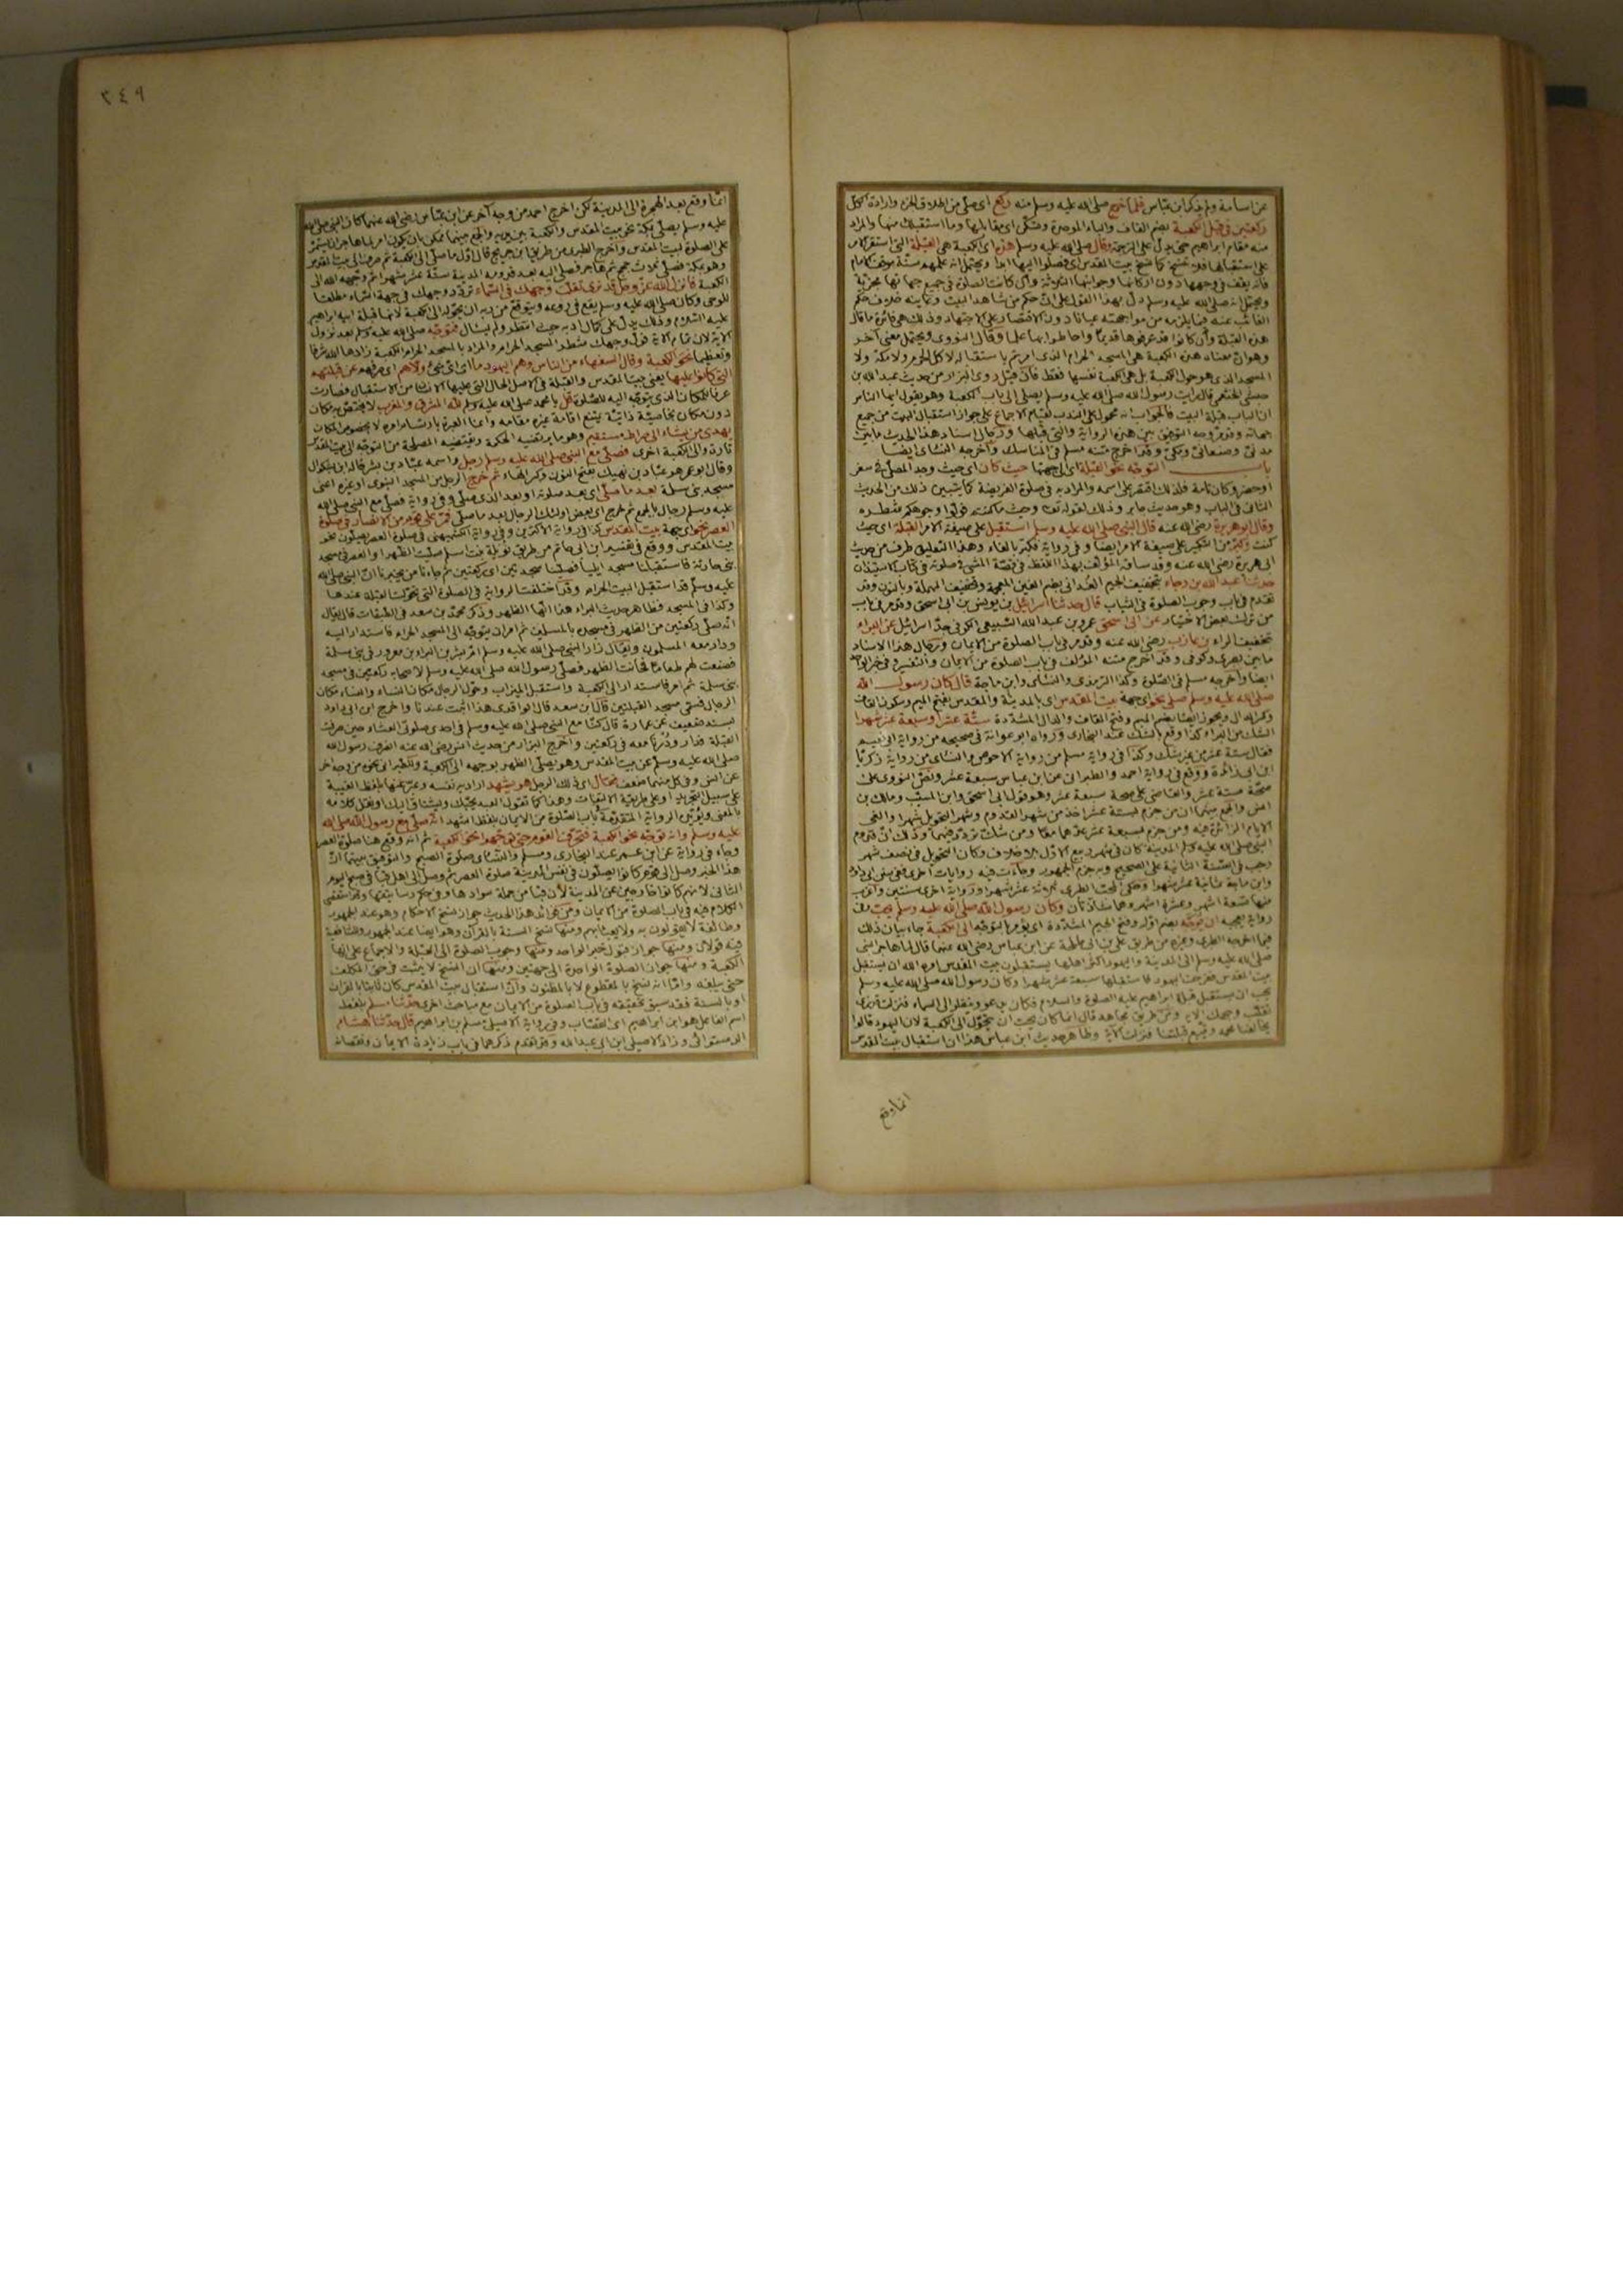 عن اسامة ولم يذكر ابن عباس فلما خرج صلى الله عليه وسلم منه ركع اى صلى من اطلاق الجزء وارادة الكل
ركعتين فى قبل الكعبة بضم القاف والباء الموحدة وتسكن اى مقابلها وما استقبلك منها والمراد
منه مقام ابراهيم حتى يدل على الترجمة وقال صلى الله عليه وسلم هذه اى الكعبة هى القبلة التى استقر الامر
على استقبالها فلا تنسخ كما نسخ بيت المقدس اى فصلوا اليها ابدا ويحتمل انه علمهم سنة موقف الامام
فانه يقف فى وجهها دون اركانها وجوانبها الثلاثة وان كانت الصلاة فى جميع جهاتها مجزية
ويحتمل انه صلى الله عليه وسلم دل بهذا القول على ان حكم من شاهد البيت وعاينه خلاف حكم
الغائب عنه فيما يلزمه من مواجهته عيانا دون الاقتصار على الاجتهاد وذلك هى فائدة ما قال
هذه القبلة وان كانوا قد عرفوها قديما واحاطوا بها علما وقال النووى ويحتمل معنى آخر
وهو ان معناه هذه الكعبة هى المسجد الحرام الذى امرتم باستقباله لا كل الحرم ولا مكة ولا
المسجد الذى هو حول الكعبة بل هى الكعبة نفسها فقط فان قيل روى البزار من حديث عبد الله بن
حبشى الخثعمى قال رايت رسول الله صلى الله عليه وسلم يصلى الى باب الكعبة وهو يقول ايها الناس
ان الباب قبلة البيت فالجواب انه محمول على الندب لقيام الاجماع على جواز استقبال البيت من جميع
جهاته وقد مر وجه التوفيق بين هذه الرواية والتى قبلها ورجال اسناد هذا الحديث ما بين
مدنى وصنعانى ومكى وقد اخرج متنه مسلم فى المناسك واخرجه النسائى ايضا
باب التوجه نحو القبلة اى الى جهتها حيث كان اى حيث وجد المصلى فى سفر
او حضر وكان تامة فلذلك اقتصر على اسمه والمراد به فى صلوة الفريضة كما يتبين ذلك من الحديث
الثانى فى الباب وهو حديث جابر وذلك لقوله تعالى وحيث ما كنتم فولوا وجوهكم شطره
وقال ابو هريرة رضى الله عنه قال النبى صلى الله عليه وسلم استقبل على صيغة الامر القبلة اى حيث
كنت وكبر من التكبير على صيغة الامر ايضا وفى رواية فكبر بالفاء وهذا التعليق طرف من حديث
ابى هريرة رضى الله عنه وقد ساقه المؤلف بهذا اللفظ فى قصة المسئ صلوته فى كتاب الاستيذان
حدثنا عبد الله بن رجاء بتخفيف الجيم الغدانى بضم الغين المعجمة وتخفيف المهملة وبالنون وقد
تقدم فى باب وجوب الصلوة فى الثياب قال حدثنا اسرائيل بن يونس بن ابى اسحق وقد مر فى باب
من ترك بعض الاختيار عن ابى اسحق عمرو بن عبد الله السبيعى الكوفى جد اسرائيل عن البراء
بتخفيف الراء بن عازب رضى الله عنه وقد مر فى باب الصلوة من الايمان ورجال هذا الاسناد
ما بين بصرى وكوفى وقد اخرج متنه المؤلف فى باب الصلوة من الايمان والتفسير وفى خبر الواحد
ايضا واخرجه مسلم فى الصلوة وكذا الترمذى والنسائى وابن ماجة قال كان رسول الله
صلى الله عليه وسلم صلى نحو اى جهة بيت المقدس اى بالمدينة والمقدس بفتح الميم وسكون القاف
وكسر الدال ويجوز ايضا بضم الميم وفتح القاف والدال المشددة ستة عشر او سبعة عشر شهرا
الشك من البراء كذا وقع بالشك عند البخارى ورواه ابو عوانة فى صحيحه من رواية ابى نعيم
فقال ستة عشر من غير شك وكذا فى رواية مسلم من رواية الاحوص والنسائى من رواية زكريا
ابن ابى زائدة ووقع فى رواية احمد والطبرانى عن ابن عباس سبعة عشر ونص النووى على
صحة ستة عشر والقاضى على صحة سبعة عشر وهو قول ابى اسحق وابن المسيب ومالك بن
انس والجمع بينهما ان من جزم بستة عشر اخذ من شهر القدوم وشهر التحويل شهرا والغى
الايام الزائدة فيه ومن جزم بسبعة عشر عدهما معا ومن شك تردد فيهما وذلك ان قدوم
النبى صلى الله عليه وسلم المدينة كان فى شهر ربيع الاول بلا خلاف وكان التحويل فى نصف شهر
رجب فى السنة الثانية على الصحيح وبه جزم الجمهور وجاءت فيه روايات اخرى ففى سنن ابى داود
وابن ماجة ثمانية عشر شهرا وحكى المحب الطبرى ثلاثة عشر شهرا ورواية اخرى سنتين واغرب
منها تسعة اشهر وعشرة اشهر وهما شاذتان وكان رسول الله صلى الله عليه وسلم يحب وفى
رواية يعجبه ان يوجه بضم اوله وفتح الجيم المشددة اى يؤمر بالتوجه الى الكعبة جاء بيان ذلك
فيما اخرجه الطبرى وغيره من طريق على بن ابى طلحة عن ابن عباس رضى الله عنهما قال لما هاجر النبى
صلى الله عليه وسلم الى المدينة واليهود اكثر اهلها يستقبلون بيت المقدس امره الله ان يستقبل
بيت المقدس ففرحت اليهود فاستقبلها سبعة عشر شهرا وكان رسول الله صلى الله عليه وسلم
يحب ان يستقبل قبلة ابراهيم عليه الصلوة والسلام فكان يدعو وينظر الى السماء فنزلت قد نرى
تقلب وجهك الاية ومن طريق مجاهد قال انما كان يحب ان يتحول الى الكعبة لان اليهود قالوا
يخالفنا محمد ويتبع قبلتنا فنزلت الآية وظاهر حديث ابن عباس هذا ان استقبال بيت المقدس
انما وقع
٣٤٩
انما وقع بعد الهجرة الى المدينة لكن اخرج احمد من وجه آخر عن ابن عباس رضى الله عنهما كان النبى صلى الله
عليه وسلم يصلى بمكة نحو بيت المقدس والكعبة بين يديه والجمع بينهما ممكن بان يكون امر لما هاجر ان يستمر
على الصلوة لبيت المقدس واخرج الطبرى من طريق ابن جريج قال اول ما صلى الى الكعبة ثم صرف الى بيت المقدس
وهو بمكة فصلى ثلاث حجج ثم هاجر فصلى اليه بعد قدومه المدينة ستة عشر شهرا ثم وجهه الله الى
الكعبة فانزل الله عز وجل قد نرى تقلب وجهك فى السماء تردد وجهك فى جهة السماء تطلعا
للوحى وكان صلى الله عليه وسلم يقع فى روعه ويتوقع من ربه ان يحوله الى الكعبة لانها قبلة ابيه ابراهيم
عليه السلام وذلك يدل على كمال ادبه حيث انتظر ولم يسال فتوجه صلى الله عليه وسلم بعد نزول
الآية لان تمام الآية فول وجهك شطر المسجد الحرام والمراد بالمسجد الحرام الكعبة زادها الله شرفا
وتعظيما نحو الكعبة وقال السفهاء من الناس وهم اليهود ما اى اى شئ ولاهم اى صرفهم عن قبلتهم
التى كانوا عليها يعنى بيت المقدس والقبلة فى الاصل الحال التى عليها الانسان من الاستقبال فصارت
عرفا للمكان الذى يتوجه اليه للصلوة قل يا محمد صلى الله عليه وسلم لله المشرق والمغرب لا يختص به مكان
دون مكان بخاصية ذاتية يمنع اقامة غيره مقامه وانما العبرة بارتسام امره لا بخصوص المكان
يهدى من يشاء الى صراط مستقيم وهو ما يرتضيه الحكمة وتقتضيه المصلحة من التوجه الى بيت المقدس
تارة والى الكعبة اخرى فصلى مع النبى صلى الله عليه وسلم رجل واسمه عباد بن بشر قاله ابن بشكوال
وقال ابو عمر هو عباد بن نهيك بفتح النون وكسر الهاء ثم خرج الرجل من المسجد النبوى او غيره اعنى
مسجد بنى سلمة بعد ما صلى اى بعد صلوته او بعد الذى صلى وفى رواية فصلى مع النبى صلى الله
عليه وسلم رجال بالجمع ثم خرج اى بعض اولئك الرجال بعد ما صلى فمر على قوم من الانصار فى صلوة
العصر نحو اى جهة بيت المقدس كذا فى رواية الاكثرين وفى رواية الكشميهنى فى صلوة العصر يصلون نحو
بيت المقدس ووقع فى تفسير ابن ابى حاتم من طريق نويلة بنت اسلم صليت الظهر او العصر فى مسجد
بنى حارثة فاستقبلنا مسجد ايليا فصلينا سجدتين اى ركعتين ثم جاءنا من يخبرنا ان النبى صلى الله
عليه وسلم قد استقبل البيت الحرام وقد اختلفت الرواية فى الصلوة التى تحولت القبلة عندها
وكذا فى المسجد فظاهر حديث البراء هذا انها الظهر وذكر محمد بن سعد فى الطبقات قال يقال
انه صلى ركعتين من الظهر فى مسجده بالمسلمين ثم امر ان يتوجه الى المسجد الحرام فاستدار اليه
ودار معه المسلمون ويقال زار النبى صلى الله عليه وسلم ام بشر بن البراء بن معرور فى بنى سلمة
فصنعت لهم طعاما فحانت الظهر فصلى رسول الله صلى الله عليه وسلم لاصحابه ركعتين فى مسجد
بنى سلمة ثم امر فاستدار الى الكعبة واستقبل الميزاب وحول الرجال مكان النساء والنساء مكان
الرجال فسمى مسجد القبلتين قال ابن سعد قال الواقدى هذا اثبت عندنا واخرج ابن ابى داود
بسند ضعيف عن عمارة قال كنا مع النبى صلى الله عليه وسلم فى احدى صلوتى العشاء حين صرفت
القبلة فدار ودرنا معه فى ركعتين واخرج البزار من حديث انس رضى الله عنه انصرف رسول الله
صلى الله عليه وسلم عن بيت المقدس وهو يصلى الظهر بوجهه الى الكعبة وللطبرانى نحوه من وجه آخر
عن انس وفى كل منهما ضعف فقال اى ذلك الرجل هو يشهد اراد به نفسه وعبر عنها بلفظ الغيبة
على سبيل التجريد او على طريقة الالتفات وهذا كما تقول العبد يحبك ويشتاق اليك او نقل كلامه
بالمعنى ويؤيده الرواية المتقدمة باب الصلوة من الايمان بلفظ اشهد انه صلى مع رسول الله صلى الله
عليه وسلم وانه توجه نحو الكعبة فتحرف القوم حتى توجهوا نحو الكعبة ثم انه وقع هنا صلوة العصر
وجاء فى رواية عن ابن عمر عند البخارى ومسلم والنسائى صلوة الصبح والتوفيق بينهما ان
هذا الخبر وصل الى قوم كانوا يصلون فى نفس المدينة صلوة العصر ثم وصل الى اهل قبا فى صبح اليوم
الثانى لانهم كانوا خارجين عن المدينة لان قبا من جملة سوادها وفى حكم رساتيقها وقد استقصى
الكلام فيه فى باب الصلوة من الايمان ومن فوائد هذا الحديث جواز نسخ الاحكام وهو عند الجمهور
وطائفة لا يقولون به ولا يعبأ بهم ومنها نسخ السنة بالقرآن وهو ايضا عند الجمهور وللشافعية
فيه قولان ومنها جواز قبول خبر الواحد ومنها وجوب الصلوة الى القبلة والاجماع على انها
الكعبة ومنها جواز الصلوة الواحدة الى جهتين ومنها ان النسخ لا يثبت فى حق المكلف
حتى يبلغه واما انه نسخ بالمقطوع لا بالمظنون وان استقبال بيت المقدس كان ثابتا بالقرآن
او بالسنة فقد سبق تحقيقه فى باب الصلوة من الايمان مع مباحث اخرى حدثنا مسلم بلفظ
اسم الفاعل هو ابن ابراهيم اى القصاب وفى رواية الاصيلى مسلم بن ابراهيم قال حدثنا هشام
الدستوائى وزاد الاصيلى ابن ابى عبد الله وقد تقدم ذكرهما فى باب زيادة الايمان ونقصانه